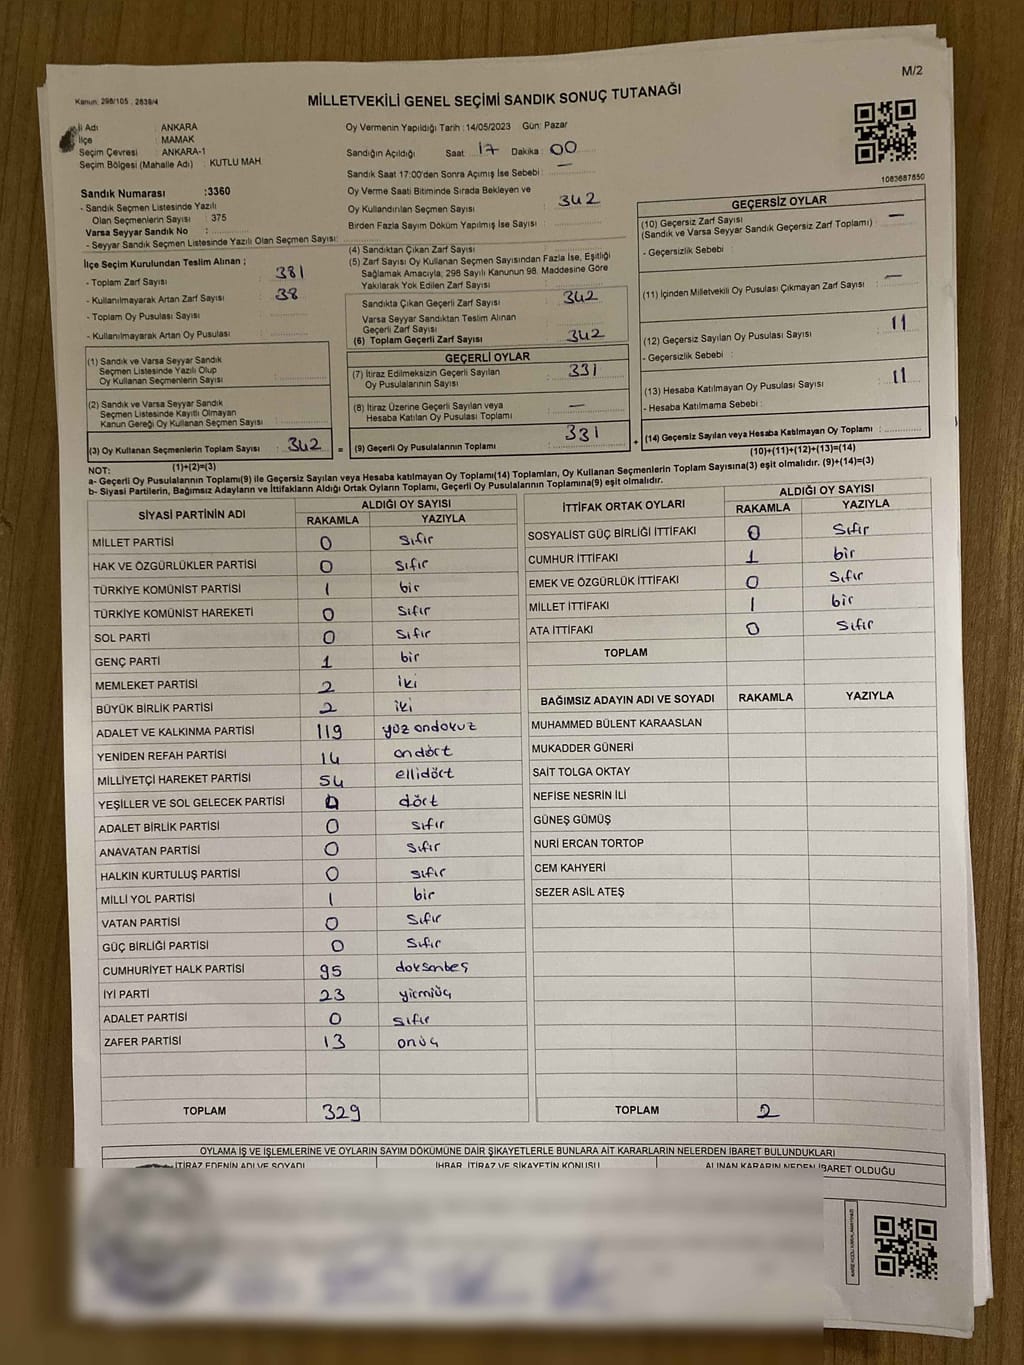 M/2
Kanun: 298/105 , 2839/4
MİLLETVEKİLİ GENEL SEÇİMİ SANDIK SONUÇ TUTANAĞI
İl Adı : ANKARA
İlçe : MAMAK
Seçim Çevresi : ANKARA-1
Seçim Bölgesi (Mahalle Adı) : KUTLU MAH.
Sandık Numarası :3360
- Sandık Seçmen Listesinde Yazılı
Olan Seçmenlerin Sayısı : 375
Varsa Seyyar Sandık No :
- Seyyar Sandık Seçmen Listesinde Yazılı Olan Seçmen Sayısı:
Oy Vermenin Yapıldığı Tarih :14/05/2023 Gün: Pazar
Sandığın Açıldığı Saat : 17 Dakika : 00
Sandık Saat 17:00'den Sonra Açımış İse Sebebi : —
Oy Verme Saati Bitiminde Sırada Bekleyen ve
Oy Kullandırılan Seçmen Sayısı : 342
Birden Fazla Sayım Döküm Yapılmış İse Sayısı :
1083687850
İlçe Seçim Kurulundan Teslim Alınan ;
- Toplam Zarf Sayısı : 381
- Kullanılmayarak Artan Zarf Sayısı : 38
- Toplam Oy Pusulası Sayısı :
- Kullanılmayarak Artan Oy Pusulası :
(1) Sandık ve Varsa Seyyar Sandık
Seçmen Listesinde Yazılı Olup
Oy Kullanan Seçmenlerin Sayısı :
(2) Sandık ve Varsa Seyyar Sandık
Seçmen Listesinde Kayıtlı Olmayan
Kanun Gereği Oy Kullanan Seçmen Sayısı :
(3) Oy Kullanan Seçmenlerin Toplam Sayısı : 342 =
(1)+(2)=(3)
(4) Sandıktan Çıkan Zarf Sayısı :
(5) Zarf Sayısı Oy Kullanan Seçmen Sayısından Fazla İse, Eşitliği
Sağlamak Amacıyla, 298 Sayılı Kanunun 98. Maddesine Göre
Yakılarak Yok Edilen Zarf Sayısı :
Sandıkta Çıkan Geçerli Zarf Sayısı : 342
Varsa Seyyar Sandıktan Teslim Alınan
Geçerli Zarf Sayısı :
(6) Toplam Geçerli Zarf Sayısı : 342
GEÇERLİ OYLAR
(7) İtiraz Edilmeksizin Geçerli Sayılan
Oy Pusulalarının Sayısı : 331
(8) İtiraz Üzerine Geçerli Sayılan veya
Hesaba Katılan Oy Pusulası Toplamı : —
(9) Geçerli Oy Pusulalarının Toplamı : 331 +
GEÇERSİZ OYLAR
(10) Geçersiz Zarf Sayısı
(Sandık ve Varsa Seyyar Sandık Geçersiz Zarf Toplamı) : —
- Geçersizlik Sebebi :
(11) İçinden Milletvekili Oy Pusulası Çıkmayan Zarf Sayısı : —
(12) Geçersiz Sayılan Oy Pusulası Sayısı : 11
- Geçersizlik Sebebi :
(13) Hesaba Katılmayan Oy Pusulası Sayısı : 11
- Hesaba Katılmama Sebebi :
(14) Geçersiz Sayılan veya Hesaba Katılmayan Oy Toplamı :
(10)+(11)+(12)+(13)=(14)
NOT:
a- Geçerli Oy Pusulalarının Toplamı(9) ile Geçersiz Sayılan veya Hesaba katılmayan Oy Toplamı(14) Toplamları, Oy Kullanan Seçmenlerin Toplam Sayısına(3) eşit olmalıdır. (9)+(14)=(3)
b- Siyasi Partilerin, Bağımsız Adayların ve İttifakların Aldığı Ortak Oyların Toplamı, Geçerli Oy Pusulalarının Toplamına(9) eşit olmalıdır.
SİYASİ PARTİNİN ADI ALDIĞI OY SAYISI
RAKAMLA YAZIYLA
MİLLET PARTİSİ 0 sıfır
HAK VE ÖZGÜRLÜKLER PARTİSİ 0 sıfır
TÜRKİYE KOMÜNİST PARTİSİ 1 bir
TÜRKİYE KOMÜNİST HAREKETİ 0 sıfır
SOL PARTİ 0 sıfır
GENÇ PARTİ 1 bir
MEMLEKET PARTİSİ 2 iki
BÜYÜK BİRLİK PARTİSİ 2 iki
ADALET VE KALKINMA PARTİSİ 119 yüz ondokuz
YENİDEN REFAH PARTİSİ 14 ondört
MİLLİYETÇİ HAREKET PARTİSİ 54 ellidört
YEŞİLLER VE SOL GELECEK PARTİSİ 4 dört
ADALET BİRLİK PARTİSİ 0 sıfır
ANAVATAN PARTİSİ 0 sıfır
HALKIN KURTULUŞ PARTİSİ 0 sıfır
MİLLİ YOL PARTİSİ 1 bir
VATAN PARTİSİ 0 sıfır
GÜÇ BİRLİĞİ PARTİSİ 0 sıfır
CUMHURİYET HALK PARTİSİ 95 doksanbeş
İYİ PARTİ 23 yirmiüç
ADALET PARTİSİ 0 sıfır
ZAFER PARTİSİ 13 onüç
TOPLAM 329
İTTİFAK ORTAK OYLARI ALDIĞI OY SAYISI
RAKAMLA YAZIYLA
SOSYALİST GÜÇ BİRLİĞİ İTTİFAKI 0 sıfır
CUMHUR İTTİFAKI 1 bir
EMEK VE ÖZGÜRLÜK İTTİFAKI 0 sıfır
MİLLET İTTİFAKI 1 bir
ATA İTTİFAKI 0 sıfır
TOPLAM
BAĞIMSIZ ADAYIN ADI VE SOYADI RAKAMLA YAZIYLA
MUHAMMED BÜLENT KARAASLAN
MUKADDER GÜNERİ
SAİT TOLGA OKTAY
NEFİSE NESRİN İLİ
GÜNEŞ GÜMÜŞ
NURİ ERCAN TORTOP
CEM KAHYERİ
SEZER ASİL ATEŞ
TOPLAM 2
OYLAMA İŞ VE İŞLEMLERİNE VE OYLARIN SAYIM DÖKÜMÜNE DAİR ŞİKAYETLERLE BUNLARA AİT KARARLARIN NELERDEN İBARET BULUNDUKLARI
İTİRAZ EDENİN ADI VE SOYADI İHBAR, İTİRAZ VE ŞİKAYETİN KONUSU ALINAN KARARIN NEDEN İBARET OLDUĞU